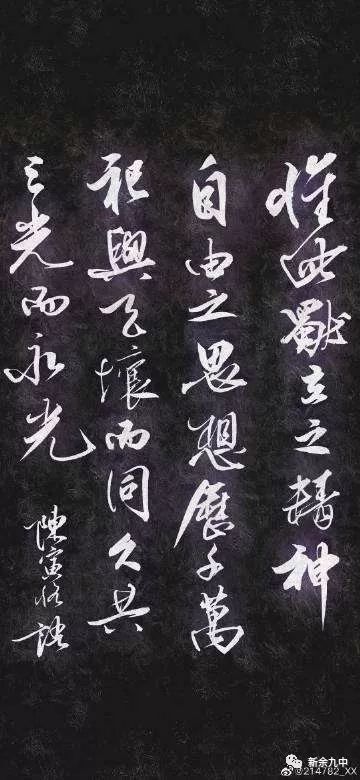 惟此獨立之精神
自由之思想歷千萬
祀與天壤而同久共
三光而永光
陳寅恪語
新余九中
@214782_XX